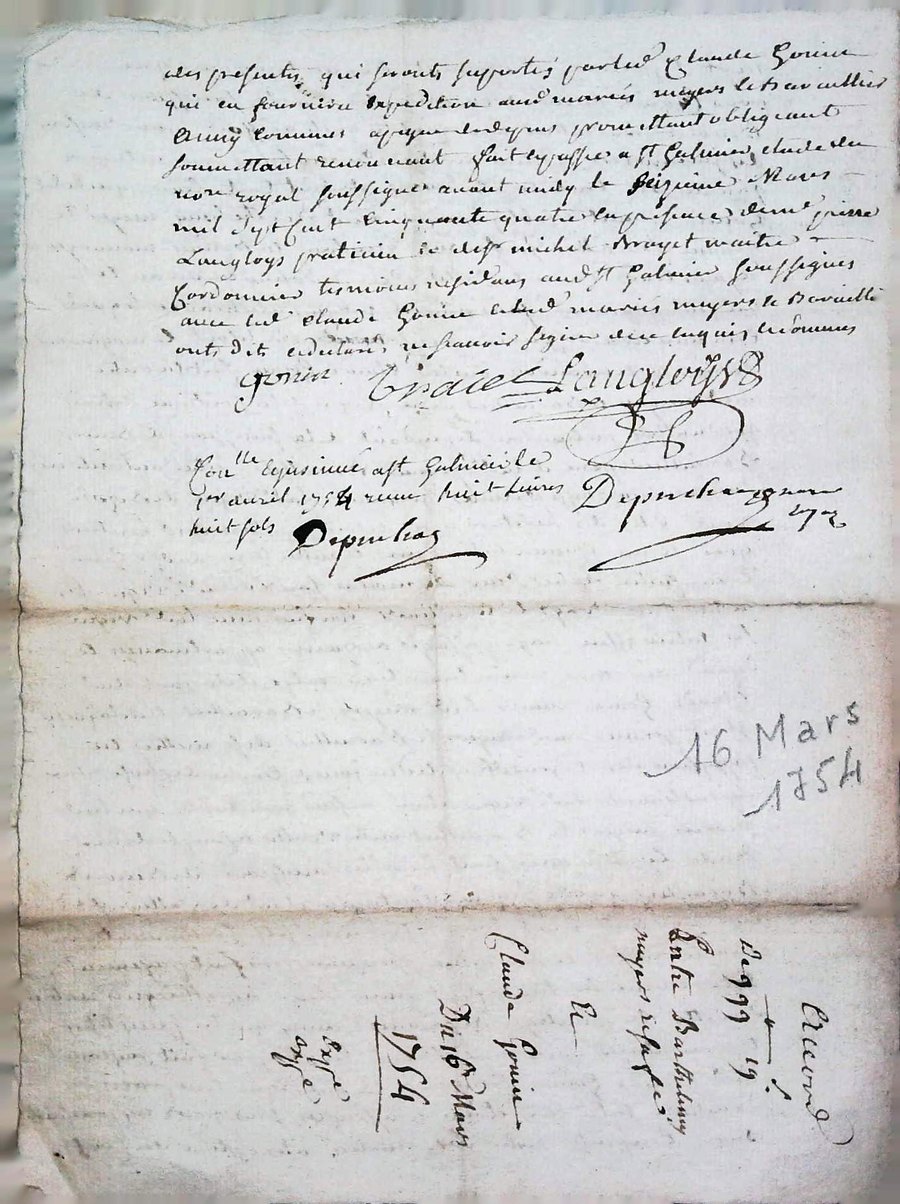 des presentes qui seronts suportés par led Claude Gonin
qui en fournira expedition aud mariés meyers le Bavaillier
Ainsy Convenus a peyne de depens promettant obligeant
soumettant renoncant fait et passé a St Galmier etude du
nore royal soussigné avant midy le seizieme Mars
mil sept Cent Cinquante quatre en presence de me pierre
Langloys praticien et de sr michel Brayet maitre
Cordonnier temoins residans aud St Galmier soussignés
avec led Claude Gonin et led mariés meyers et Bavaillé
onts dits et declarés ne scavoir signer de ce enquis et sommés
gonin Langloys
Conlle et jnsinué a St Galmier le
1er avril 1754 receu huit Livres
huit sols
16 Mars
1754
Accord
19
Entre Barthelemy
meyers
Et
Claude Gonin
Du 16e Mars
1754
Expé
Expé